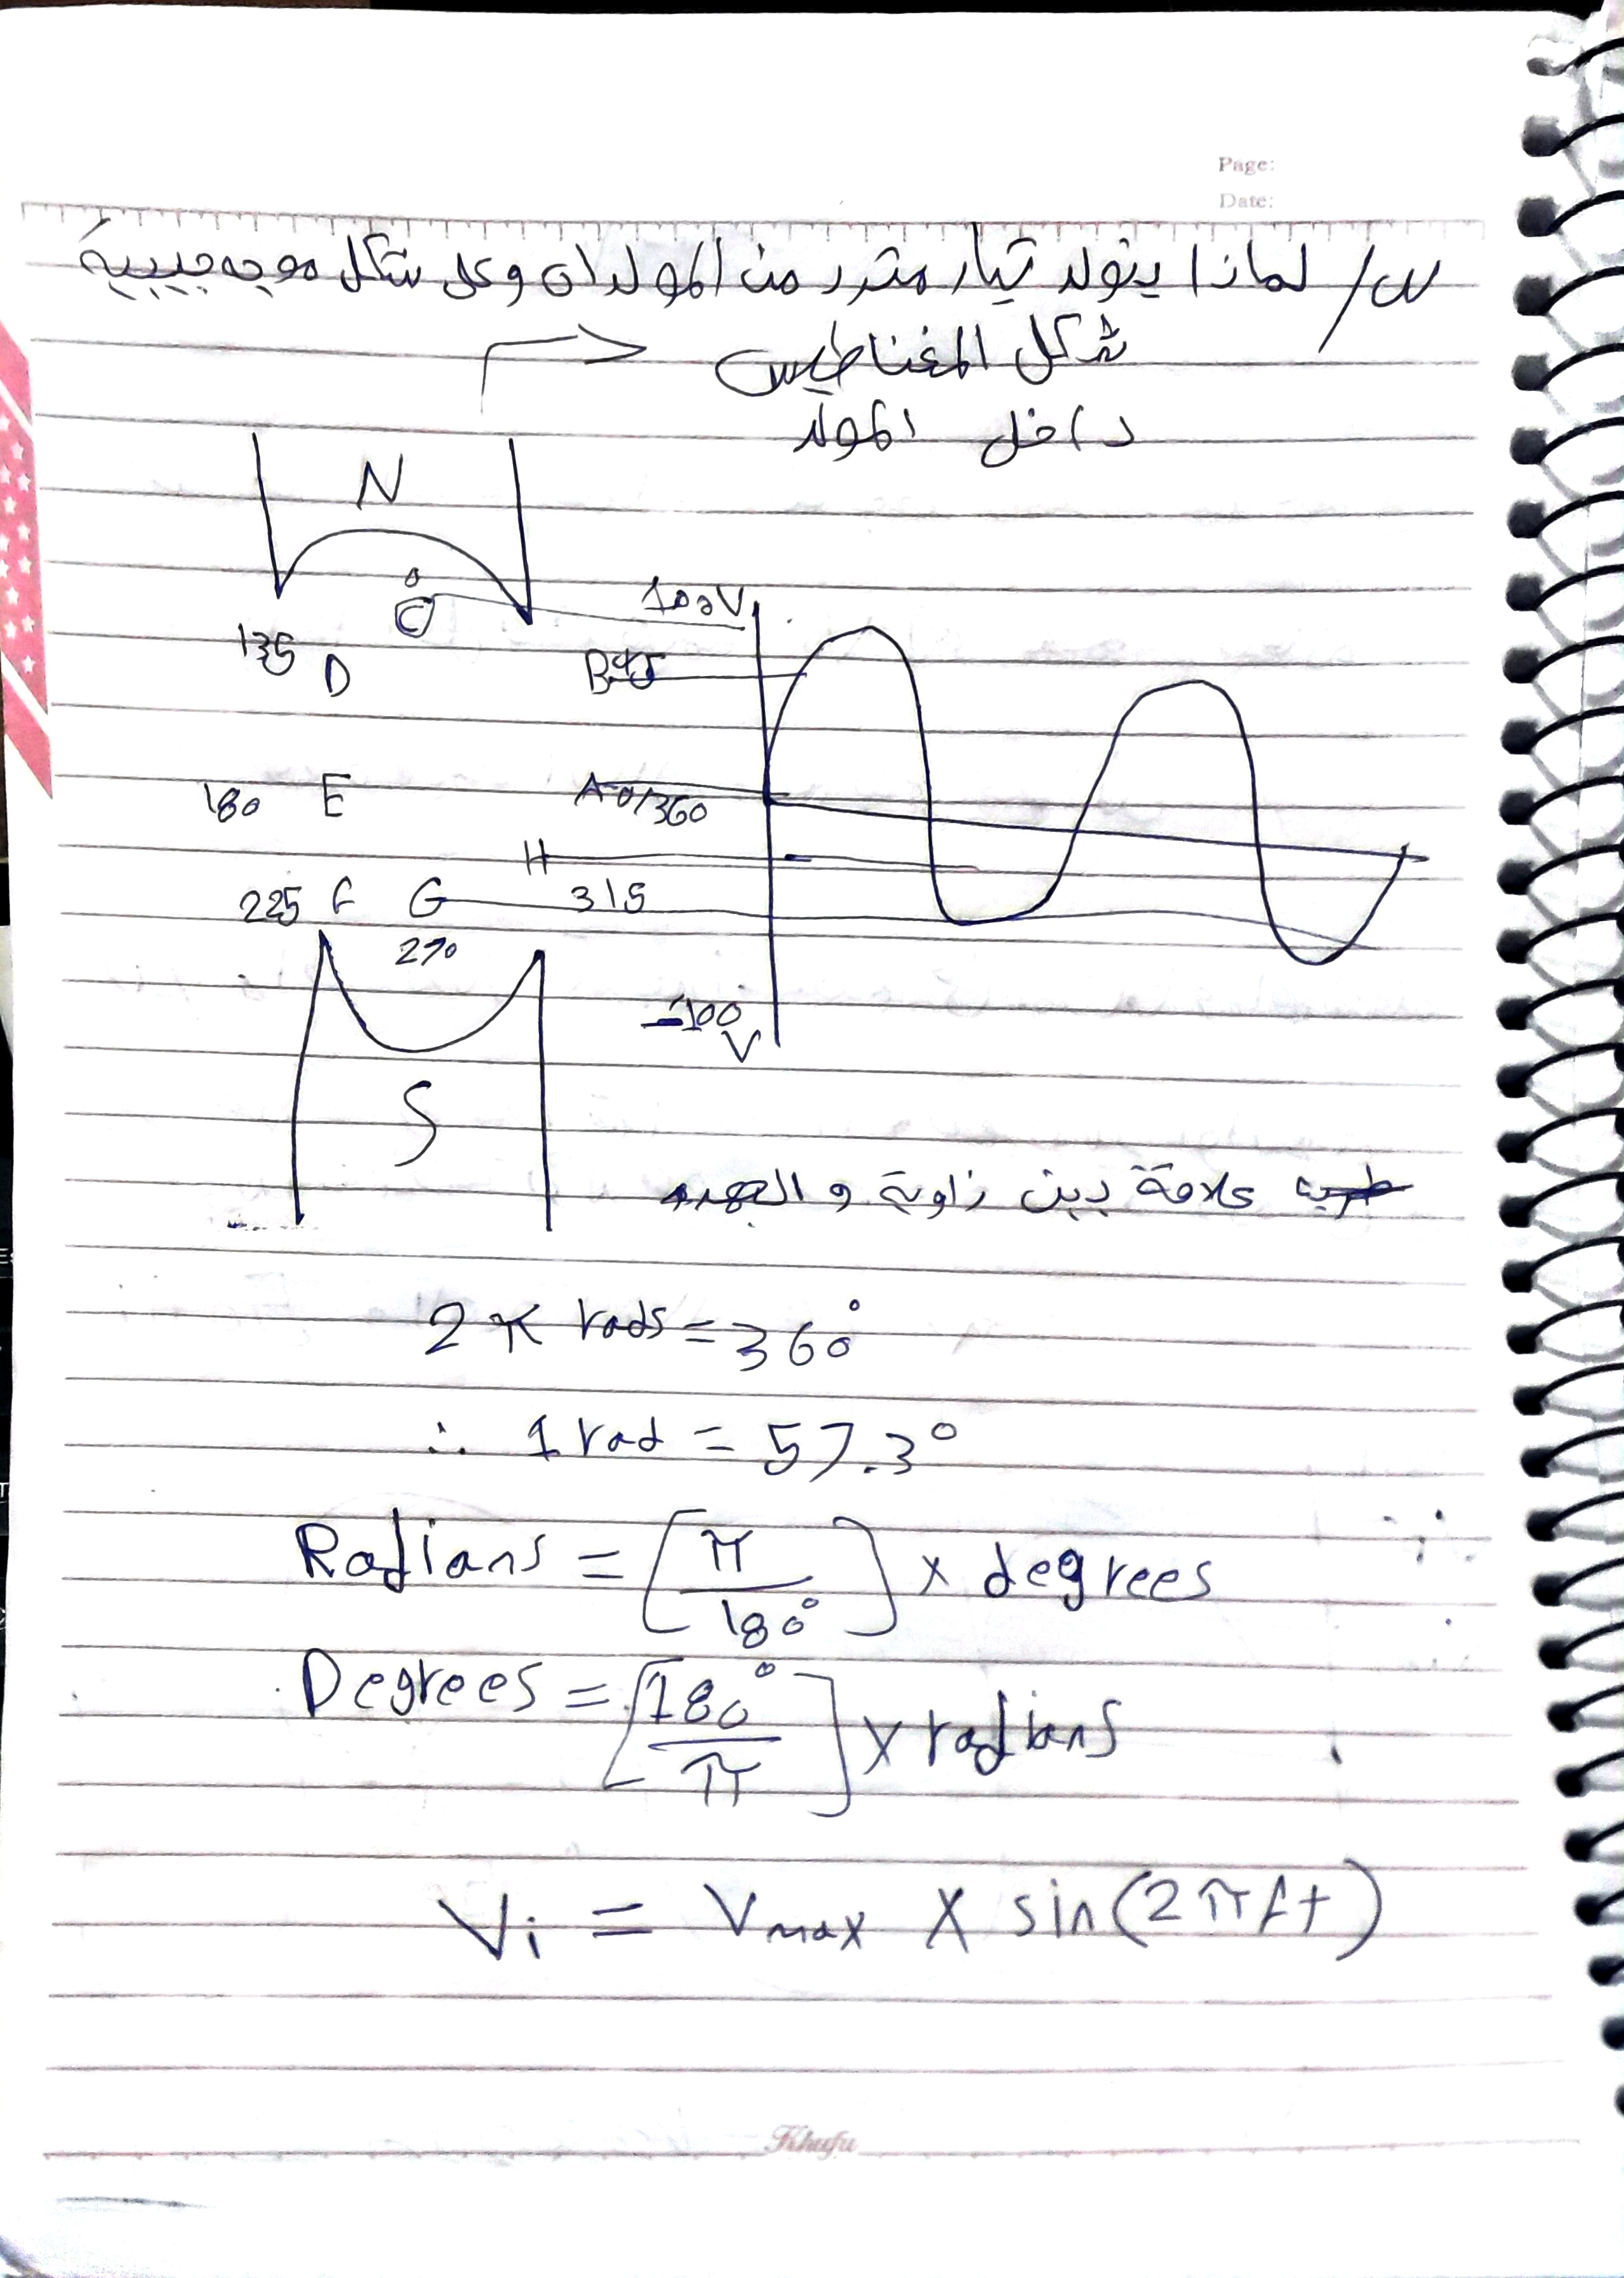 Page:
Date:
س/ لماذا يتولد تيار متردد من المولدات وعلى شكل موجه جيبية
شكل المغناطيس
داخل المولد
N
C
100V
135 D
B 45
180 E
A 0/360
H
225 F G 315
270
-100
V
S
علاقة بين زاوية و الجهد
2π rads = 360°
∴ 1 rad = 57.3°
Radians = [π / 180°] × degrees
Degrees = [180° / π] × radians
Vi = Vmax X sin(2πft)
Khufu